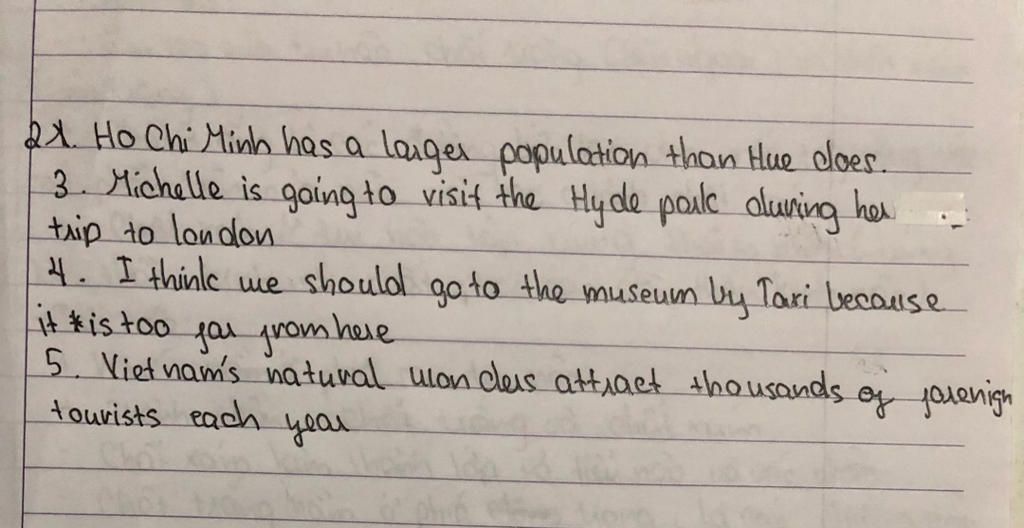 2. Ho Chi Minh has a larger population than Hue does.
3. Michelle is going to visit the Hyde park during her
trip to london
4. I think we should go to the museum by Taxi because
it is too far from here
5. Vietnam's natural wonders attract thousands of forenign
tourists each year